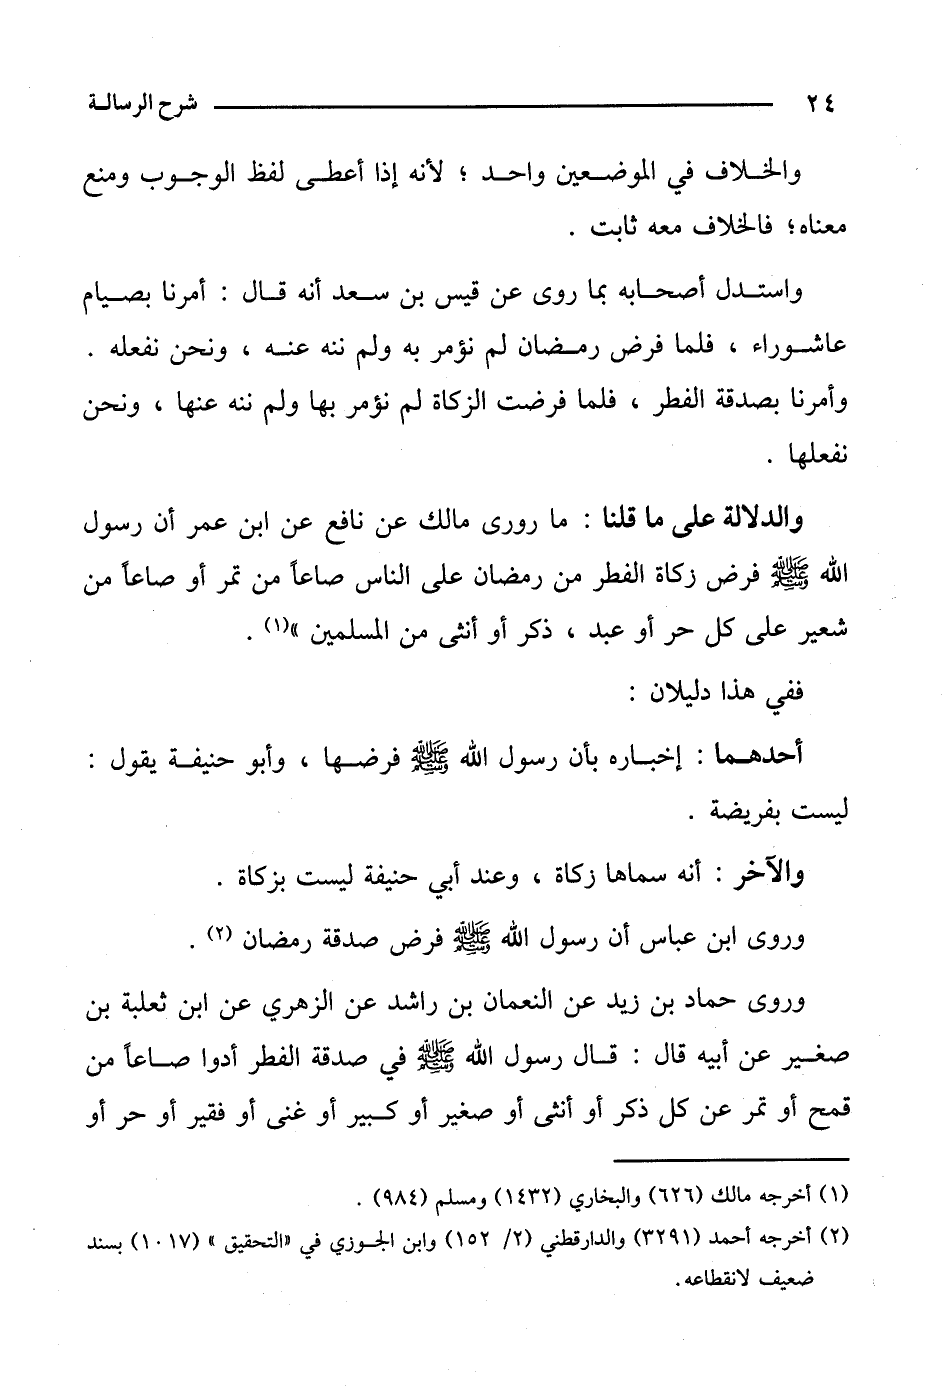 ٢٤ شرح الرسالة
والخلاف في الموضعين واحد ؛ لأنه إذا أعطى لفظ الوجوب ومنع
معناه؛ فالخلاف معه ثابت .
واستدل أصحابه بما روى عن قيس بن سعد أنه قال : أمرنا بصيام
عاشوراء ، فلما فرض رمضان لم نؤمر به ولم ننه عنه ، ونحن نفعله .
وأمرنا بصدقة الفطر ، فلما فرضت الزكاة لم نؤمر بها ولم ننه عنها ، ونحن
نفعلها .
والدلالة على ما قلنا : ما رورى مالك عن نافع عن ابن عمر أن رسول
الله ﷺ فرض زكاة الفطر من رمضان على الناس صاعاً من تمر أو صاعاً من
شعير على كل حر أو عبد ، ذكر أو أنثى من المسلمين »(١) .
ففي هذا دليلان :
أحدهما : إخباره بأن رسول الله ﷺ فرضها ، وأبو حنيفة يقول :
ليست بفريضة .
والآخر : أنه سماها زكاة ، وعند أبي حنيفة ليست بزكاة .
وروى ابن عباس أن رسول الله ﷺ فرض صدقة رمضان (٢) .
وروى حماد بن زيد عن النعمان بن راشد عن الزهري عن ابن ثعلبة بن
صغير عن أبيه قال : قال رسول الله ﷺ في صدقة الفطر أدوا صاعاً من
قمح أو تمر عن كل ذكر أو أنثى أو صغير أو كبير أو غنى أو فقير أو حر أو
(١) أخرجه مالك (٦٢٦) والبخاري (١٤٣٢) ومسلم (٩٨٤) .
(٢) أخرجه أحمد (٣٢٩١) والدارقطني (٢/ ١٥٢) وابن الجوزي في «التحقيق » (١٠١٧) بسند
ضعيف لانقطاعه.